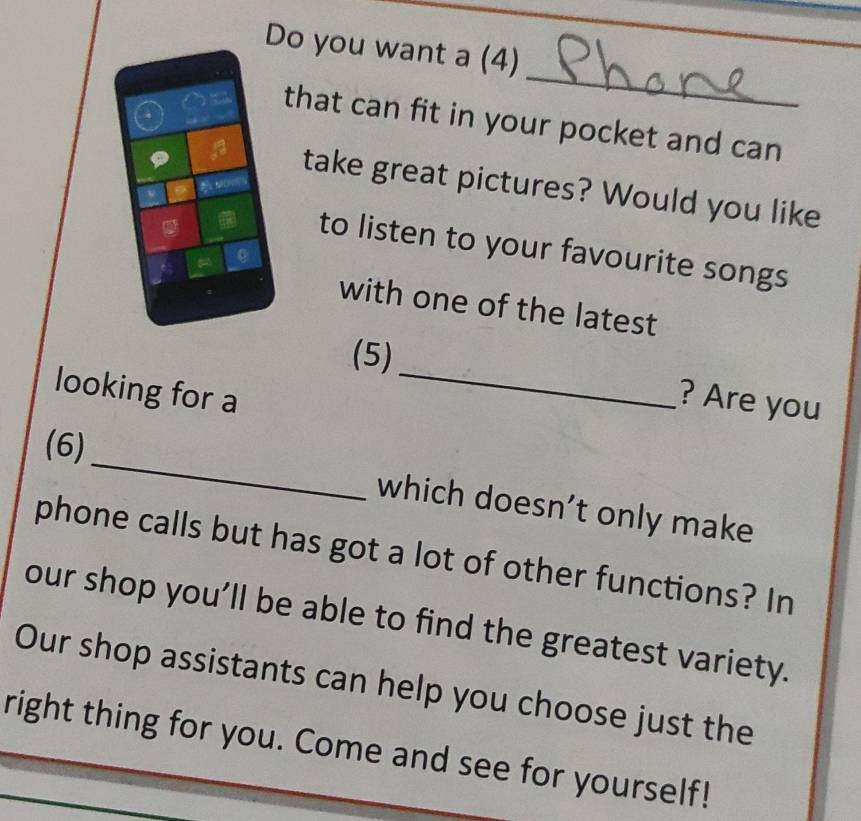 Do you want a (4) Phone
that can fit in your pocket and can
take great pictures? Would you like
to listen to your favourite songs
with one of the latest
(5) ____________? Are you
looking for a
(6) ____________ which doesn't only make
phone calls but has got a lot of other functions? In
our shop you'll be able to find the greatest variety.
Our shop assistants can help you choose just the
right thing for you. Come and see for yourself!